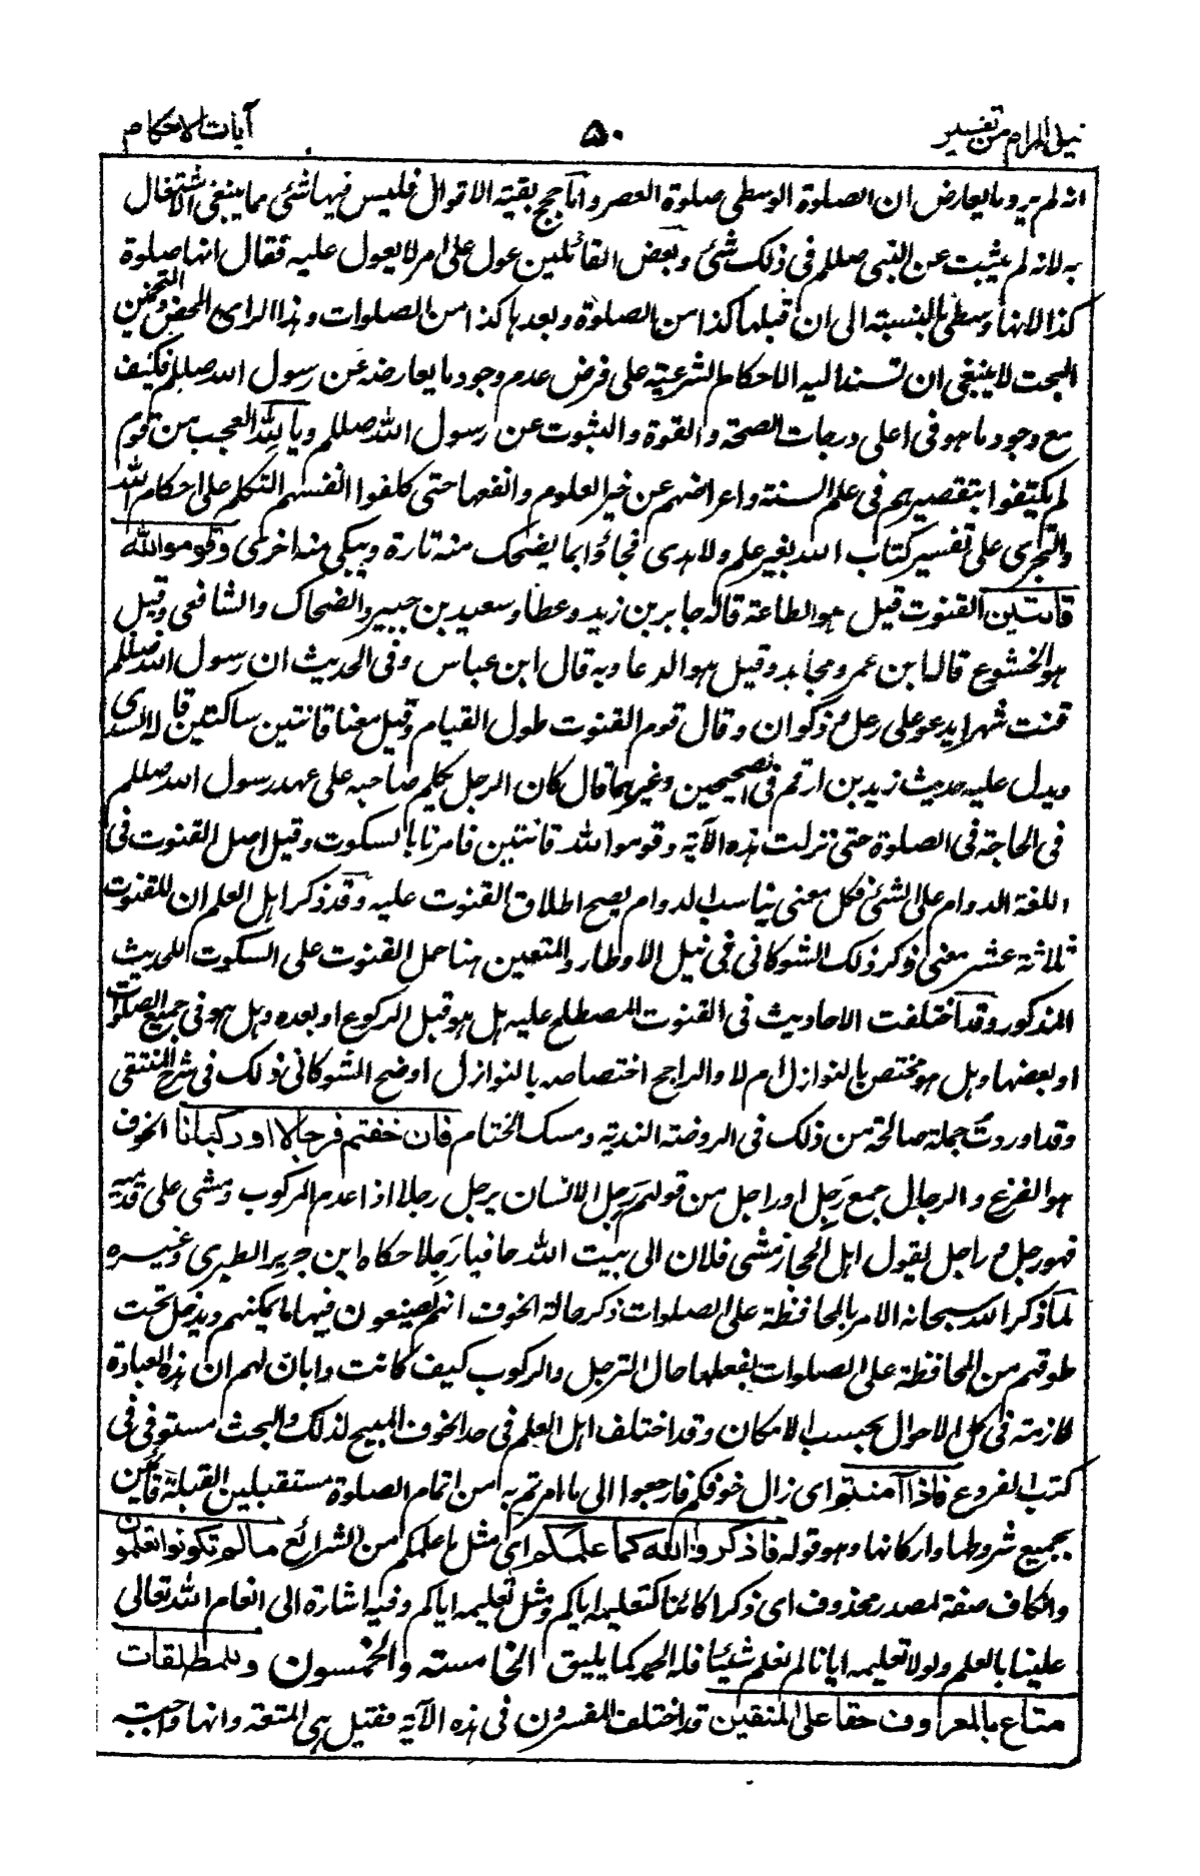 نيل المرام من تفسير ۵۰ آيات الاحكام
انه لم يرو ما يعارض ان الصلوة الوسطى صلوة العصر واما حجج بقية الاقوال فليس فيها شئ مما ينبغى الاشتغال
به لانه لم يثبت عن النبى صللم فى ذلك شئ وبعض القائلين عول على امر لا يعول عليه فقال انها صلوة
كذا لانها وسطى بالنسبة الى ان قبلها كذا من الصلوة وبعدها كذا من الصلوات وهذا الراى المحض والتخمين
البحت لا ينبغى ان تسند اليه الاحكام الشرعية على فرض عدم وجود ما يعارضه عن رسول الله صللم فكيف
مع وجود ما هو فى اعلى درجات الصحة والقوة والثبوت عن رسول الله صللم ويا لله العجب من قوم
لم يكتفوا بتقصيرهم فى علم السنة واعراضهم عن خير العلوم وانفعها حتى كلفوا انفسهم التكلم على احكام الله
والتجرى على تفسير كتاب الله بغير علم ولا هدى فجاؤا بما يضحك منه تارة ويبكى منه اخرى وقوموا لله
قانتين القنوت قيل هو الطاعة قاله جابر بن زيد وعطا وسعيد بن جبير والضحاك والشافعى وقيل
هو الخشوع قاله ابن عمر ومجاهد وقيل هو الدعا وبه قال ابن عباس وفى الحديث ان رسول الله صللم
قنت شهرا يدعو على رعل وذكوان وقال قوم القنوت طول القيام وقيل معناه قانتين ساكتين قاله السدى
ويدل عليه حديث زيد بن ارقم فى الصحيحين وغيرهما قال كان الرجل يكلم صاحبه على عهد رسول الله صللم
فى الحاجة فى الصلوة حتى نزلت هذه الآية وقوموا لله قانتين فامرنا بالسكوت وقيل اصل القنوت فى
اللغة الدوام على الشئ فكل معنى يناسب الدوام يصح اطلاق القنوت عليه وقد ذكر اهل العلم ان للقنوت
ثلاثة عشر معنى ذكر ذلك الشوكانى فى نيل الاوطار والمتعين هنا حمل القنوت على السكوت للحديث
المذكور وقد اختلفت الاحاديث فى القنوت المصطلح عليه هل هو قبل الركوع او بعده وهل هو فى جميع الصلوات
او بعضها وهل هو مختص بالنوازل ام لا والراجح اختصاصه بالنوازل اوضح الشوكانى ذلك فى شرح المنتقى
وقد اوردت جملة صالحة من ذلك فى الروضة الندية ومسك الختام فان خفتم فرجالا او ركبانا الخوف
هو الفزع والرجال جمع رجل او راجل من قولهم رجل الانسان يرجل رجلا اذا عدم المركوب ومشى على قدميه
فهو رجل وراجل يقول اهل الحجاز مشى فلان الى بيت الله حافيا رجلا حكاه ابن جرير الطبرى وغيره
لما ذكر الله سبحانه الامر بالمحافظة على الصلوات ذكر حالة الخوف انهم يصنعون فيها ما يمكنهم ويدخل تحت
طوقهم من المحافظة على الصلوات بفعلها حال الترجل والركوب كيف كانت وابان لهم ان هذه العبادة
لازمة فى كل الاحوال بحسب الامكان وقد اختلف اهل العلم فى حد الخوف المبيح لذلك والبحث مستوفى فى
كتب الفروع فاذا آمنتم اى زال خوفكم فارجعوا الى ما امرتم به من اتمام الصلوة مستقبلين القبلة قائمين
بجميع شروطها واركانها وهو قوله فاذكروا الله كما علمكم اى مثل ما علمكم من الشرائع مالم تكونوا تعلمون
والكاف صفة لمصدر محذوف اى ذكرا كائنا كتعليمه اياكم ومثل تعليمه اياكم وفيه اشارة الى انعام الله تعالى
علينا بالعلم ولولا تعليمه ايانا لم نعلم شيئا فله الحمد كما يليق الخامسة والخمسون وللمطلقات
متاع بالمعروف حقا على المتقين قد اختلف المفسرون فى هذه الآية فقيل هى المتعة وانها واجبة